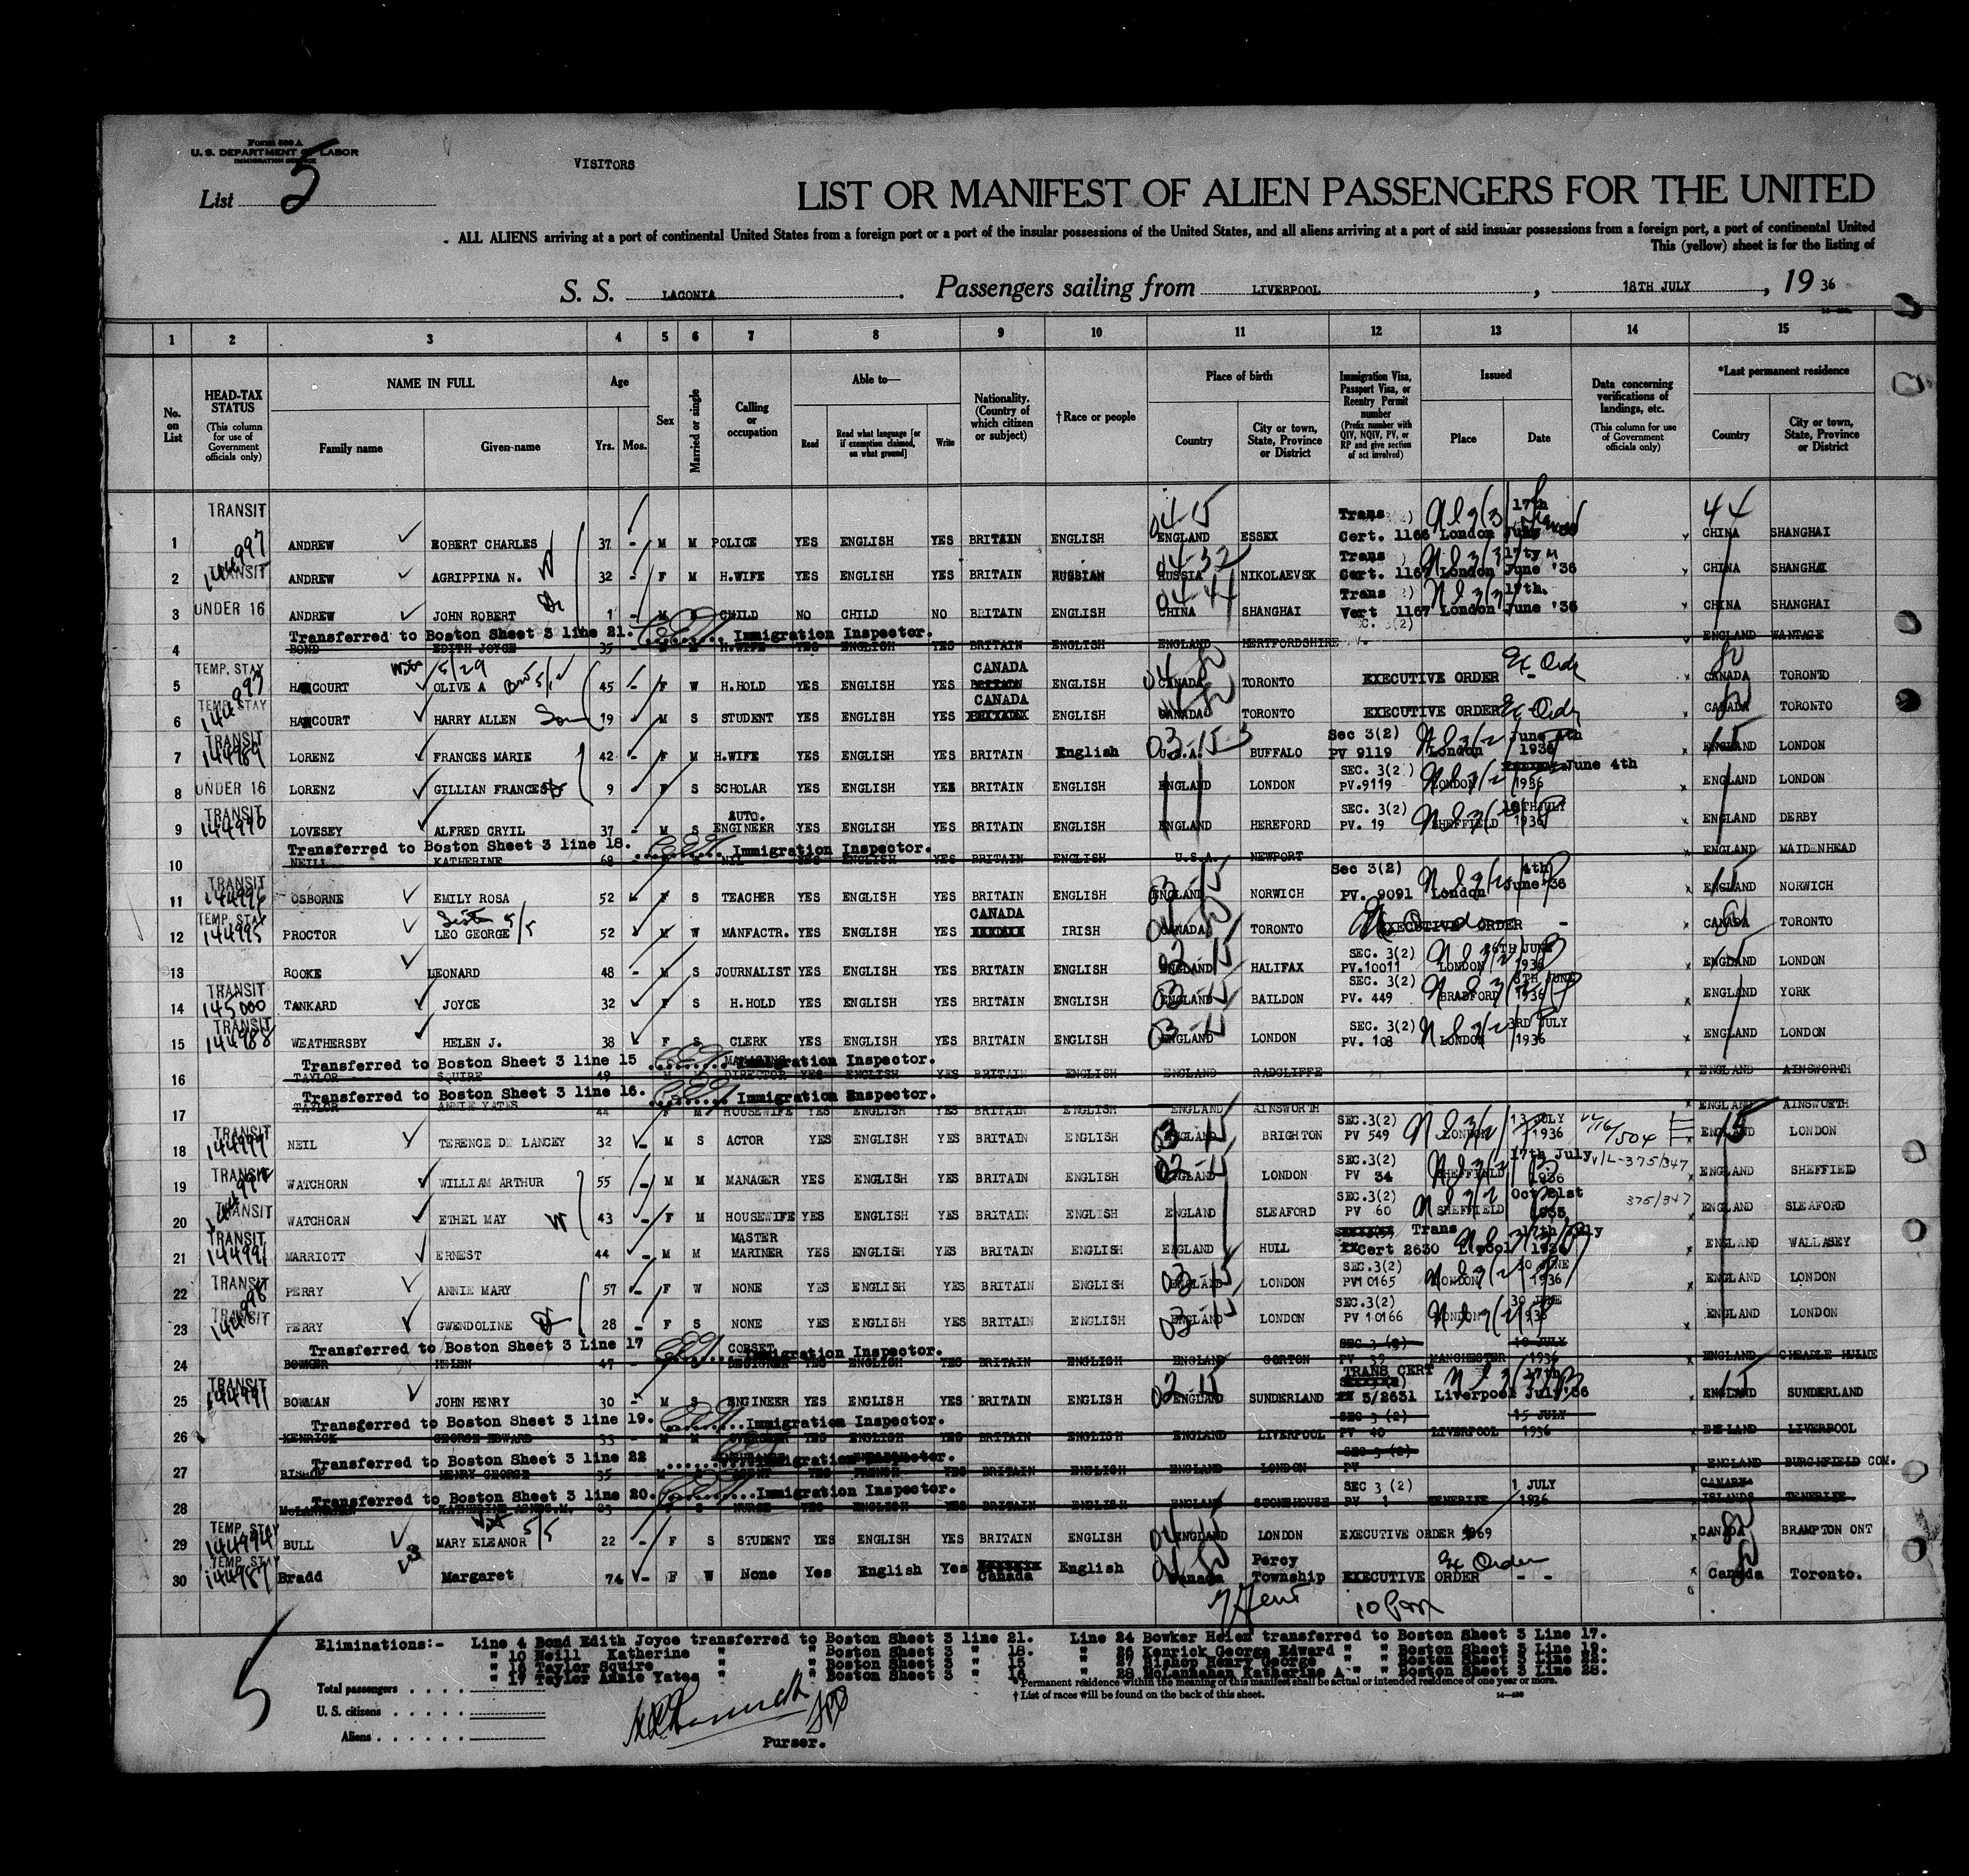 Form 500 A
U. S. DEPARTMENT OF LABOR
IMMIGRATION SERVICE
VISITORS
List 5
LIST OR MANIFEST OF ALIEN PASSENGERS FOR THE UNITED
ALL ALIENS arriving at a port of continental United States from a foreign port or a port of the insular possessions of the United States, and all aliens arriving at a port of said insular possessions from a foreign port, a port of continental United
This (yellow) sheet is for the listing of
S. S. LACONIA. Passengers sailing from LIVERPOOL, 18TH JULY, 19 36
1 2 3 4 5 6 7 8 9 10 11 12 13 14 15
No. on List
HEAD-TAX STATUS (This column for use of Government officials only)
NAME IN FULL Family name Given-name
Age Yrs. Mos.
Sex
Married or single
Calling or occupation
Able to— Read Read what language [or if exemption claimed, on what ground] Write
Nationality. (Country of which citizen or subject)
†Race or people
Place of birth Country City or town, State, Province or District
Immigration Visa, Passport Visa, or Reentry Permit number (Prefix number with QIV, NQIV, PV, or RP and give section of act involved)
Issued Place Date
Data concerning verifications of landings, etc. (This column for use of Government officials only)
*Last permanent residence Country City or town, State, Province or District
TRANSIT Trans 17th 44
1 144997 ANDREW ROBERT CHARLES 37 - M M POLICE YES ENGLISH YES BRITAIN ENGLISH 04-15 ENGLAND ESSEX Cert. 1166 London CHINA SHANGHAI
2 TRANSIT ANDREW AGRIPPINA N. W 32 - F M H.WIFE YES ENGLISH YES BRITAIN RUSSIAN 04-32 RUSSIA NIKOLAEVSK Trans Cert. 1167 London June '36 CHINA SHANGHAI
3 UNDER 16 ANDREW JOHN ROBERT 1 - M S CHILD NO CHILD NO BRITAIN ENGLISH 04-44 CHINA SHANGHAI Trans 17th. Vert 1167 London June '36 CHINA SHANGHAI
Transferred to Boston Sheet 3 line 21. Immigration Inspector.
4 BOND EDITH JOYCE 35 - F M H.WIFE YES ENGLISH YES BRITAIN ENGLISH ENGLAND HERTFORDSHIRE ENGLAND WANTAGE
5 TEMP. STAY 144993 HARCOURT OLIVE A 5/29 45 - F W H.HOLD YES ENGLISH YES CANADA BRITAIN ENGLISH CANADA TORONTO EXECUTIVE ORDER Ex Order CANADA TORONTO
6 TEMP. STAY HARCOURT HARRY ALLEN Son 19 - M S STUDENT YES ENGLISH YES CANADA ENGLISH CANADA TORONTO EXECUTIVE ORDER Ex Order CANADA TORONTO
7 TRANSIT 144989 LORENZ FRANCES MARIE 42 - F M H.WIFE YES ENGLISH YES BRITAIN English U.S.A. BUFFALO Sec 3(2) PV 9119 London June 4th 1936 ENGLAND LONDON
8 UNDER 16 LORENZ GILLIAN FRANCES 9 - F S SCHOLAR YES ENGLISH YES BRITAIN ENGLISH ENGLAND LONDON SEC. 3(2) PV.9119 LONDON June 4th 1936 ENGLAND LONDON
9 TRANSIT 144996 LOVESEY ALFRED CRYIL 37 - M S AUTO. ENGINEER YES ENGLISH YES BRITAIN ENGLISH ENGLAND HEREFORD SEC. 3(2) PV. 19 SHEFFIELD JULY 1936 ENGLAND DERBY
Transferred to Boston Sheet 3 line 18. Immigration Inspector.
10 NEILL KATHERINE 68 NIL YES ENGLISH YES BRITAIN ENGLISH U.S.A. NEWPORT ENGLAND MAIDENHEAD
11 TRANSIT OSBORNE EMILY ROSA 52 F S TEACHER YES ENGLISH YES BRITAIN ENGLISH ENGLAND NORWICH Sec 3(2) PV. 9091 London 4th June '36 ENGLAND NORWICH
12 TEMP. STAY 144995 PROCTOR LEO GEORGE Sister 5/5 52 M W MANFACTR. YES ENGLISH YES CANADA IRISH CANADA TORONTO EXECUTIVE ORDER - CANADA TORONTO
13 ROOKE LEONARD 48 - M S JOURNALIST YES ENGLISH YES BRITAIN ENGLISH ENGLAND HALIFAX SEC. 3(2) PV.10011 LONDON 26TH JUNE 1936 ENGLAND LONDON
14 TRANSIT 145000 TANKARD JOYCE 32 F S H.HOLD YES ENGLISH YES BRITAIN ENGLISH ENGLAND BAILDON SEC. 3(2) PV. 449 BRADFORD 8TH JUNE 1936 ENGLAND YORK
15 TRANSIT 144988 WEATHERSBY HELEN J. 38 F S CLERK YES ENGLISH YES BRITAIN ENGLISH ENGLAND LONDON SEC. 3(2) PV. 108 LONDON 3RD JULY 1936 ENGLAND LONDON
Transferred to Boston Sheet 3 line 15 Immigration Inspector.
16 TAYLOR SQUIRE 49 M M MANAGING DIRECTOR YES ENGLISH YES BRITAIN ENGLISH ENGLAND RADCLIFFE ENGLAND AINSWORTH
Transferred to Boston Sheet 3 line 16. Immigration Inspector.
17 TAYLOR ANNIE YATES 44 F M HOUSEWIFE YES ENGLISH YES BRITAIN ENGLISH ENGLAND AINSWORTH ENGLAND AINSWORTH
18 TRANSIT 144999 NEIL TERENCE DE LANCEY 32 - M S ACTOR YES ENGLISH YES BRITAIN ENGLISH ENGLAND BRIGHTON SEC.3(2) PV 549 LONDON 13 JULY 1936 ENGLAND LONDON
19 TRANSIT WATCHORN WILLIAM ARTHUR 55 - M M MANAGER YES ENGLISH YES BRITAIN ENGLISH ENGLAND LONDON SEC.3(2) PV 34 SHEFFIELD 17th July 1936 V/L-375/347 ENGLAND SHEFFIELD
20 TRANSIT WATCHORN ETHEL MAY W 43 - F M HOUSEWIFE YES ENGLISH YES BRITAIN ENGLISH ENGLAND SLEAFORD SEC.3(2) PV 60 SHEFFIELD Oct 21st 1935 375/347 ENGLAND SLEAFORD
21 TRANSIT 144991 MARRIOTT ERNEST 44 - M M MASTER MARINER YES ENGLISH YES BRITAIN ENGLISH ENGLAND HULL Trans Cert 2630 L'pool 17th July 1936 ENGLAND WALLASEY
22 TRANSIT PERRY ANNIE MARY 57 - F W NONE YES ENGLISH YES BRITAIN ENGLISH 03-15 ENGLAND LONDON SEC.3(2) PV10165 LONDON 30 JUNE 1936 ENGLAND LONDON
23 144998 TRANSIT PERRY GWENDOLINE 28 - F S NONE YES ENGLISH YES BRITAIN ENGLISH 03-15 ENGLAND LONDON SEC.3(2) PV 10166 LONDON 30 JUNE 1936 ENGLAND LONDON
Transferred to Boston Sheet 3 Line 17 Immigration Inspector.
24 BOWKER HELEN 47 - F S CORSET DESIGNER YES ENGLISH YES BRITAIN ENGLISH ENGLAND GORTON SEC 3 (2) PV 39 MANCHESTER 10 JULY 1936 ENGLAND CHEADLE HULME
25 TRANSIT 144991 BOWMAN JOHN HENRY 30 - M S ENGINEER YES ENGLISH YES BRITAIN ENGLISH 02-15 ENGLAND SUNDERLAND TRANS CERT 3/2631 Liverpool 17th July '36 ENGLAND SUNDERLAND
Transferred to Boston Sheet 3 line 19. Immigration Inspector.
26 KENRICK GEORGE EDWARD 33 - M M YES ENGLISH YES BRITAIN ENGLISH ENGLAND LIVERPOOL SEC 3 (2) PV 40 LIVERPOOL 15 JULY 1936 ENGLAND LIVERPOOL
Transferred to Boston Sheet 3 line 22 Immigration Inspector.
27 BISHOP HENRY GEORGE 35 - M YES FRENCH YES BRITAIN ENGLISH ENGLAND LONDON SEC 3 (2) PV ENGLAND BURGHFIELD COM.
Transferred to Boston Sheet 3 line 20. Immigration Inspector.
28 McLANNAHAN KATHERINE AGNES.M. 23 F S NURSE YES ENGLISH YES BRITAIN ENGLISH ENGLAND STONEHOUSE SEC 3 (2) PV 1 TENERIFE 1 JULY 1936 CANARY ISLANDS TENERIFE
29 TEMP. STAY 144994 BULL MARY ELEANOR 5/5 22 - F S STUDENT YES ENGLISH YES BRITAIN ENGLISH ENGLAND LONDON EXECUTIVE ORDER CANADA BRAMPTON ONT
30 TEMP. STAY 144987 Bradd Margaret 74 - F W None Yes English Yes Canada English Canada Percy Township EXECUTIVE ORDER Ex Order - - Canada Toronto.
5
Eliminations:- Line 4 Bond Edith Joyce transferred to Boston Sheet 3 line 21. Line 24 Bowker Helen transferred to Boston Sheet 3 Line 17.
" 10 Neill Katherine " " Boston Sheet 3 " 18. " 26 Kenrick George Edward " " Boston Sheet 3 Line 19.
" 16 Taylor Squire " " Boston Sheet 3 " 15 " 27 Bishop Henry George " " Boston Sheet 3 Line 22.
" 17 Taylor Annie Yates " " Boston Sheet 3 " 16 " 28 McLannahan Katherine A " " Boston Sheet 3 Line 28.
*Permanent residence within the meaning of this manifest shall be actual or intended residence of one year or more.
†List of races will be found on the back of this sheet.
Total passengers
U. S. citizens
Aliens
Purser.